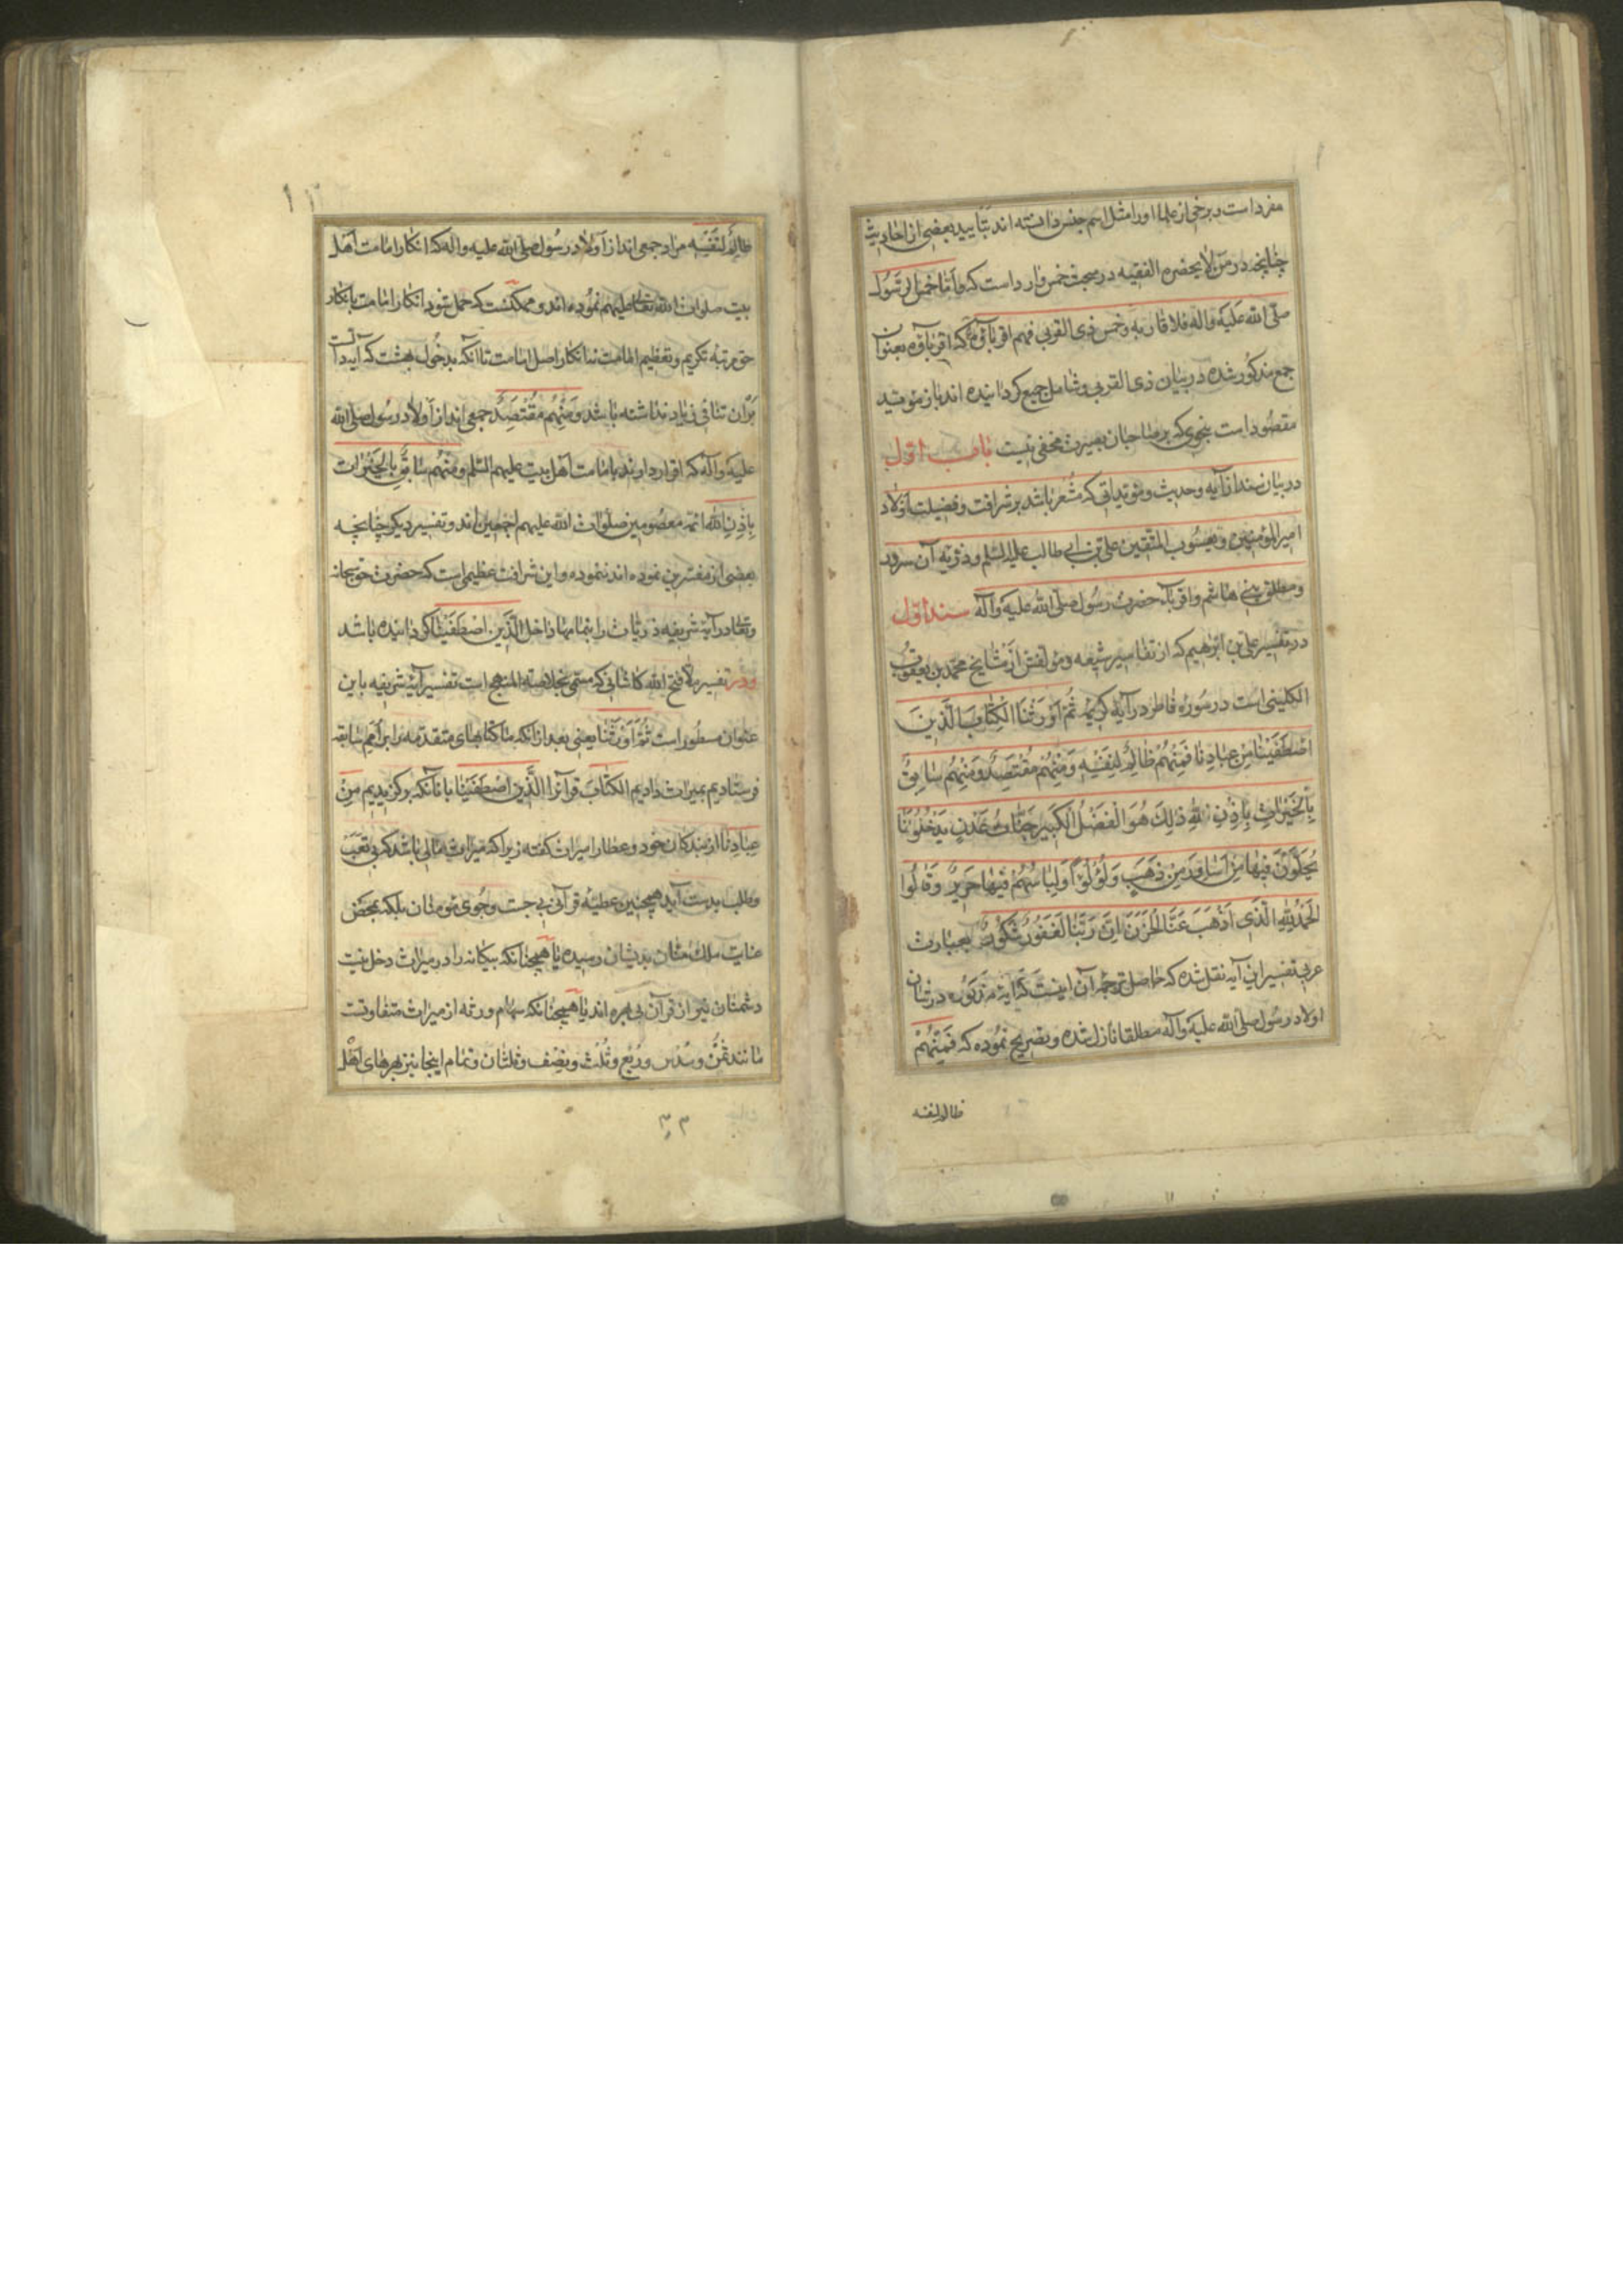 مفرد است و برخی از علما او را مثل اسم جنس دانسته اند بتایید بعضی از احادیث
چنانچه در من لا یحضره الفقیه در مبحث خمس وارد است که و اما خمس الرسول
صلی الله علیه واله فلاقاربه وخمس ذی القربی فهم اقرباؤه که اقرباؤه بعنوان
جمع مذکور شده در بیان ذی القربی و شامل جمیع گردانیده اند باز مؤید
مقصود است بنحوی که بر صاحبان بصیرت مخفی نیست باب اول
در بیان سند از آیه و حدیث و مؤیداتی که مشعر باشد بر شرافت و فضیلت اولاد
امیر المؤمنین و یعسوب المتقین علی بن ابی طالب علیه السلم و ذریه آن سرور
و مطلق بنی هاشم و اقربآء حضرت رسول صلی الله علیه وآله سند اول
در تفسیر علی بن ابرهیم که از تفاسیر شیعه و مؤلفش از مشایخ محمد بن یعقوب
الکلینی است در سوره فاطر در آیه کریمه ثُمَّ اَوْرَثْنَا الْکِتٰابَ الَّذِینَ
اصْطَفَیْنٰا مِنْ عِبٰادِنٰا فَمِنْهُمْ ظٰالِمٌ لِنَفْسِهِ وَمِنْهُمْ مُقْتَصِدٌ وَمِنْهُمْ سٰابِقٌ
بِالْخَیْرٰاتِ بِاِذْنِ اللهِ ذٰلِکَ هُوَ الْفَضْلُ الْکَبِیر جَنّٰاتُ عَدْنٍ یَدْخُلُونَهٰا
یُحَلَّوْنَ فِیهٰا مِنْ اَسٰاوِرَ مِنْ ذَهَبٍ وَلُؤْلُؤاً وَلِبٰاسُهُمْ فِیهٰا حَرِیرٌ وَقٰالُوا
الْحَمْدُ لِلّٰهِ الَّذِی اَذْهَبَ عَنَّا الْحَزَنَ اِنَّ رَبَّنٰا لَغَفُورٌ شَکُورٌ بعبارت
عربی تفسیر این آیه نقل شده که حاصل ترجمه آن اینست که آیه مزبوره در شان
اولاد رسول صلی الله علیه وآله مطلقا نازل شده و تصریح نموده که فَمِنْهُمْ
ظالم لنفسه
ظٰالِمٌ لِنَفْسِهِ مراد جمعی اند از اولاد رسول صلی الله علیه واله که انکار امامت اهل
بیت صلوات الله تعالی علیهم نموده اند و ممکنست که حمل شود انکار امامت بانکار
حق مرتبه تکریم و تعظیم امامت نه انکار اصل امامت تا آنکه بدخول بهشت که آیه دآلست
بر آن تنافی زیاد نداشته باشد وَمِنْهُمْ مُقْتَصِدٌ جمعی اند از اولاد رسول صلی الله
علیه وآله که اقرار دارند بامامت اهل بیت علیهم السلم وَمِنْهُمْ سٰابِقٌ بِالْخَیْرٰاتِ
بِاِذْنِ اللهِ ائمه معصومین صلوات الله علیهم اجمعین اند و تفسیر دیگر چنانچه
بعضی از مفسرین نموده اند ننموده و این شرافت عظیمی است که حضرت حق سبحانه
و تعالی در آیه شریفه ذریات را بتمامها داخل الَّذِینَ اصْطَفَیْنٰا گردانیده باشد
و در تفسیر ملا فتح الله کاشانی که مسمی بخلاصة المنهج است تفسیر آیه شریفه باین
عنوان مسطور است ثُمَّ اَوْرَثْنٰا یعنی بعد از آنکه ما کتابهای متقدمه را بر امم سابقه
فرستادیم بمیراث دادیم الکتٰابَ قرآنرا الَّذِینَ اصْطَفَیْنٰا بانٓانکه برگزیدیم مِنْ
عِبٰادِنٰا از بندکان خود و عطا را میراث گفته زیرا که میراث مالی باشد که بی تعب
و طلب بدست آید همچنین عطیه قرآنی بی جست و جوی مؤمنان بلکه بمحض
عنایت ملک منان بدیشان رسیده یا همچنانکه بیکانه را در میراث دخل نیست
دشمنان نیز از قرآن بی بهره اند یا همچنانکه سهام ورثه از میراث متفاوتست
مانند ثُمْن و سُدْس و رُبْع و ثُلْث و نِصْف و ثلثان و تمام اینجا نیز بهرهای اهل